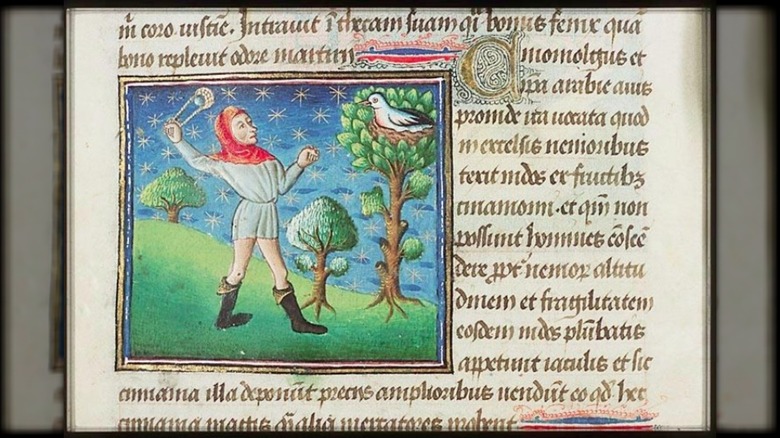 Intrauit i thecam suam bonus fenix qua
bono repleuit odore martirii
Cinomolgus et
ipa arabie auis
proinde ita uocata quod
in excelsis nemoribus
texit nidos ex fructibꝫ
cinamomi. et qm̄ non
possunt homines cōscē
dere nemor altitu
dinem et fragilitatem
eosdem nidos plūbatis
appetunt iaculis et sic
cinnama illa deponūt precijs amplioribus uendūt eo qd̄ hec
cinnama magis qm̄ alia mercatores probent